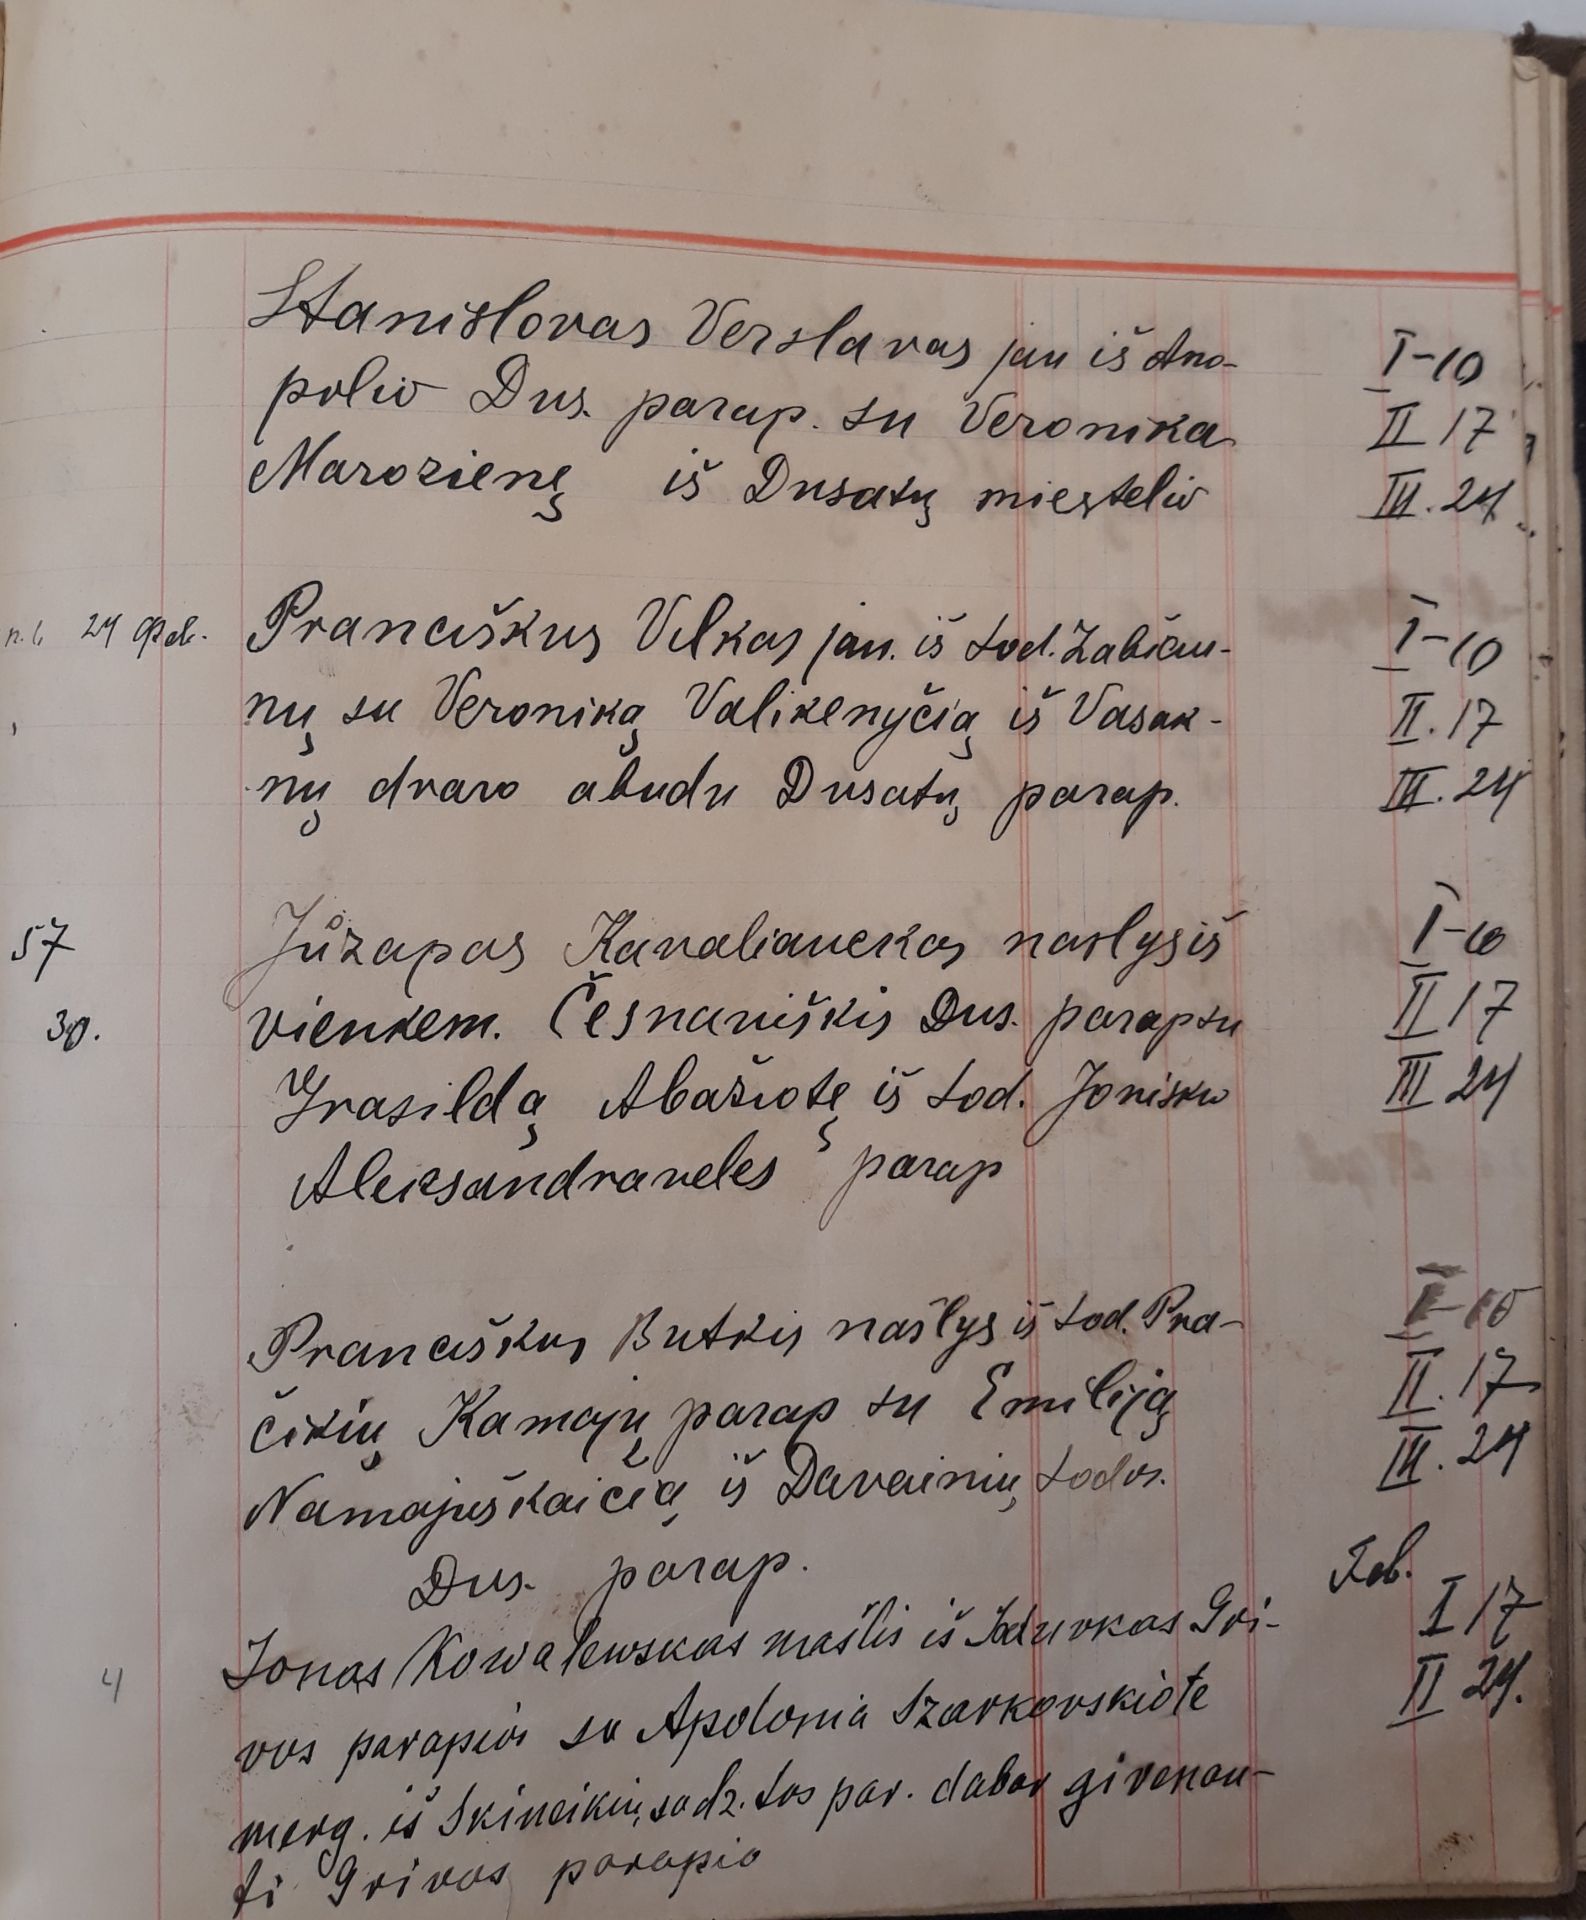 Stanislovas Verslavas jau iš Ano-
polio Dus. parap. su Veronika
Marozienę iš Dusatų miestelio
I-10
II 17
III. 24
24 Feb. Pranciškus Vilkas jau. iš sod. Zabičiu-
nų su Veroniką Valikenyčią iš Vasak-
nų dvaro abudu Dusatų parap.
I-10
II. 17
III. 24
57 Jůzapas Kavaliauckas našlys iš
30. vienkem. Česnaviškis Dus. parap su
Grasildą Abažiotę iš sod. Joniškio
Aleksandraveles parap
I-10
II 17
III 24
Pranciškus Butkis našlys iš sod. Pra-
čikių Kamajų parap su Emiliją
Namajuškaičią iš Davainių sodos.
Dus. parap.
I-10
II. 17
III. 24
4 Jonas Kowalewskas našlis iš Gri-
vos parapios su Apolonia Szarkovskiote
merg. iš Skineikių sodz. tos par. dabar givenan-
ti Grivos parapio
Feb.
I 17
II 24.